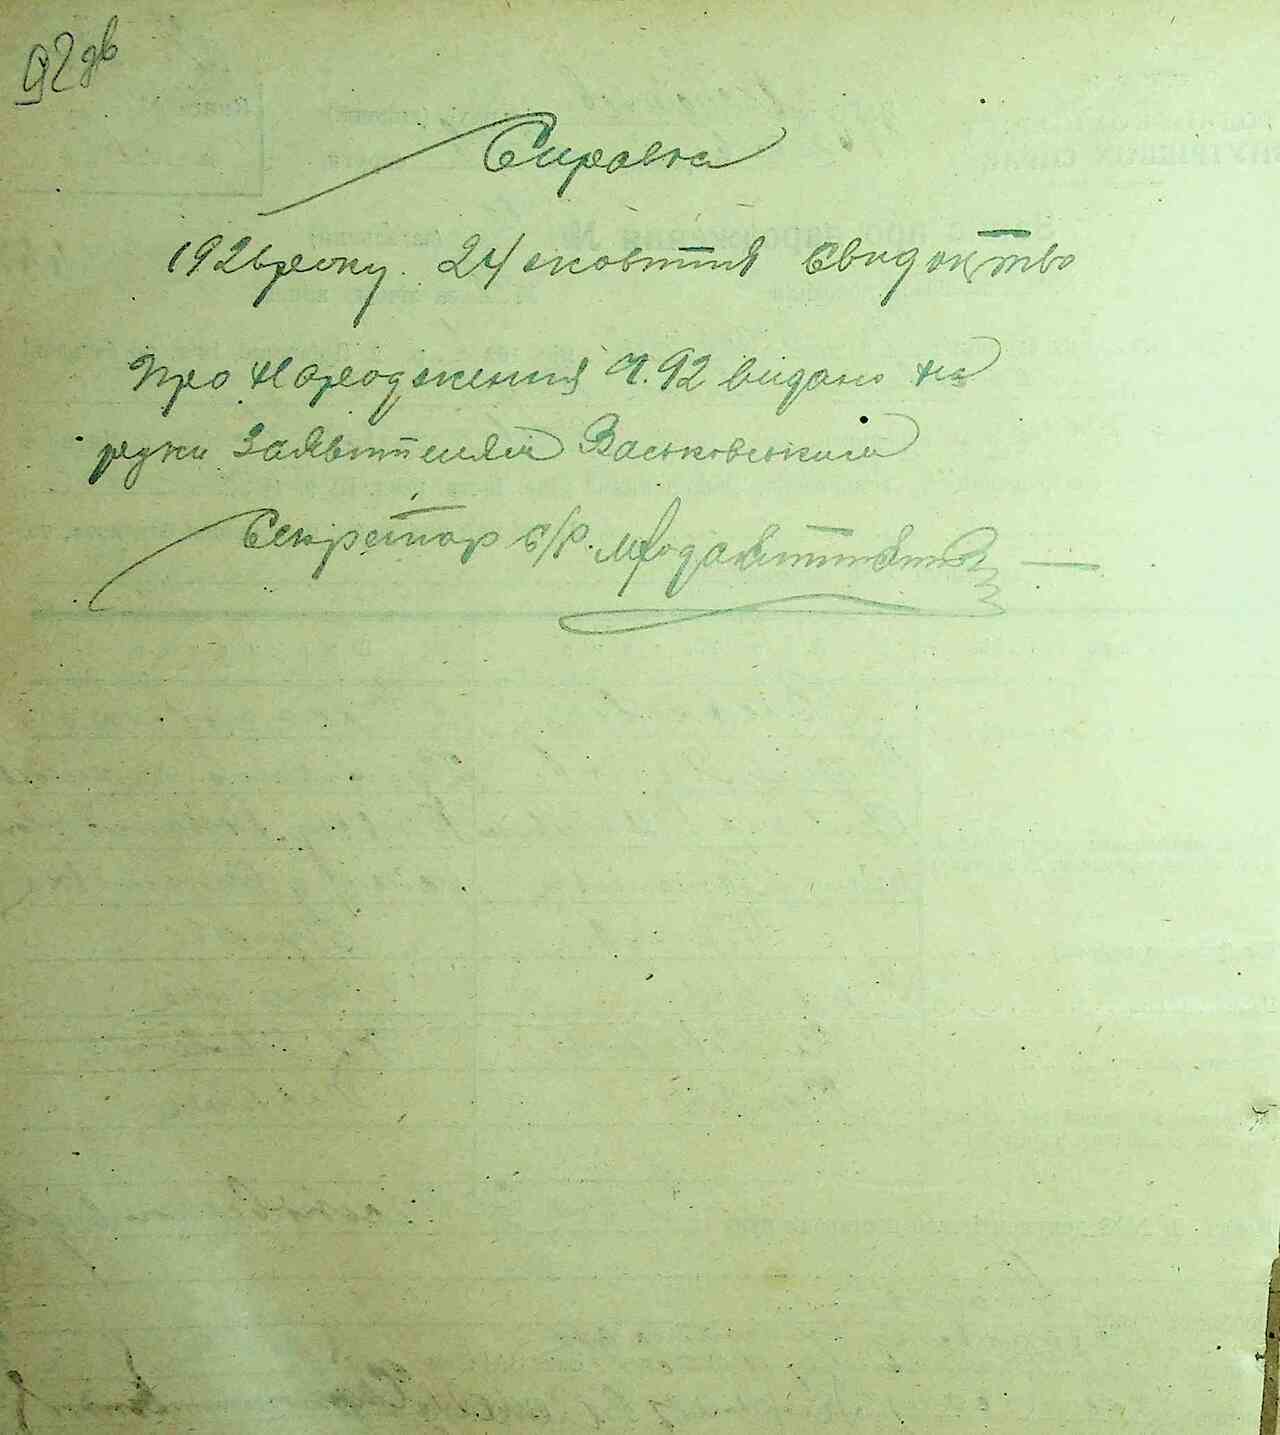 92 зв
Справка
1926 року 24 жовтня свидоцтво
про народження Ч. 92 видано на
руки заявителям Васьковським
Секретар с/р.